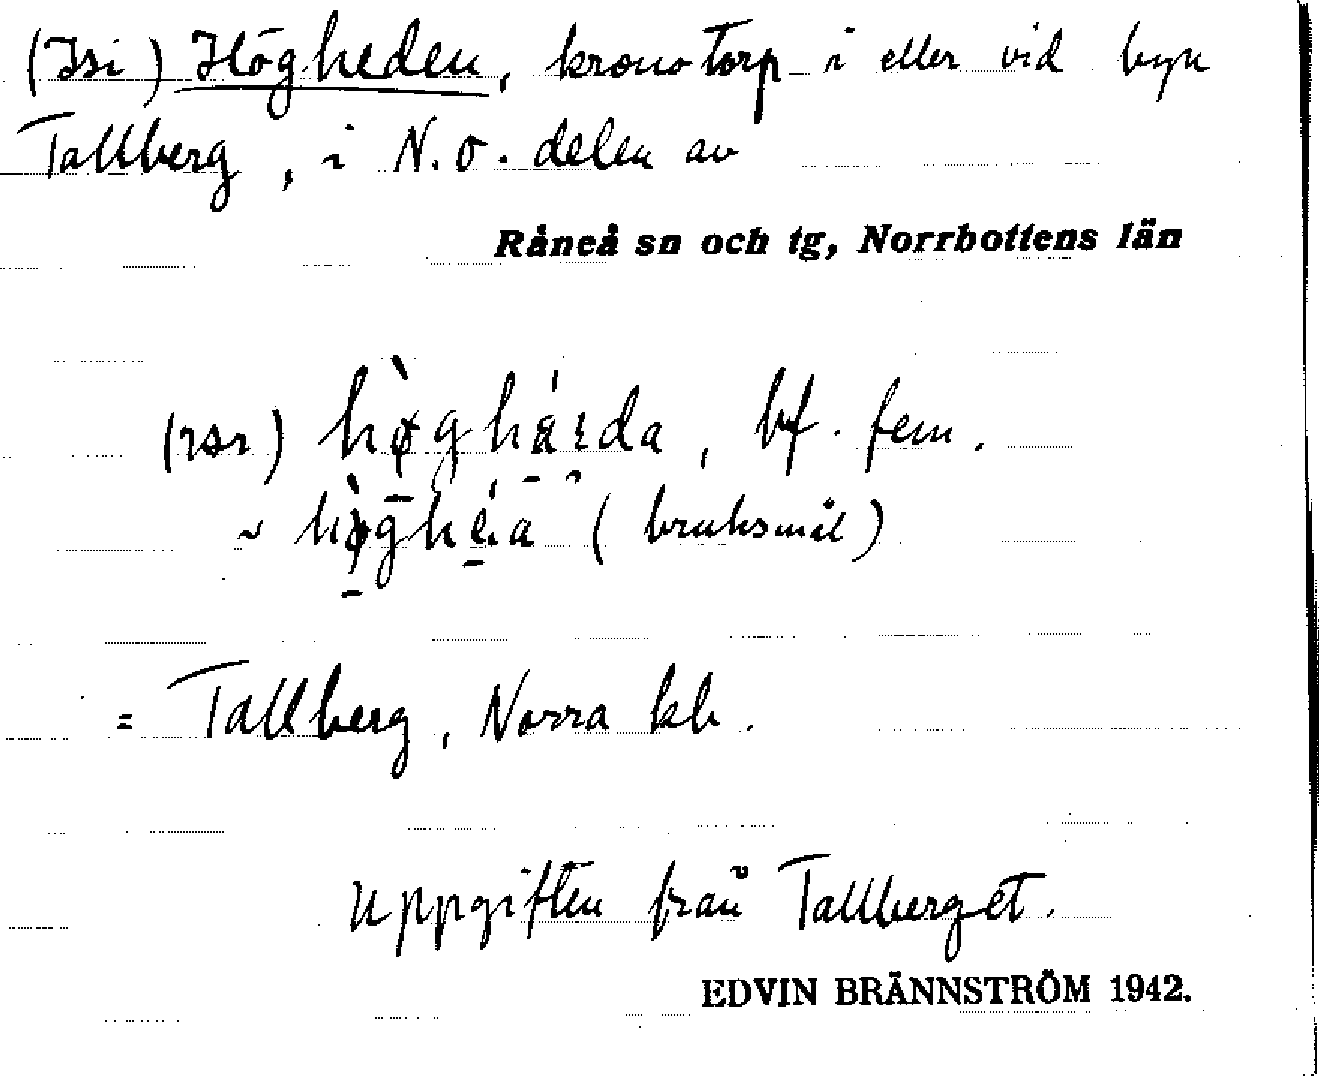 (Isi) Högheden, kronotorp i eller vid byn
Tallberg, i N.O. delen av
Råneå sn och tg, Norrbottens län
(rsr) bf. fem.
~ (bruksmål)
= Tallberg, Norra kb.
Uppgiften från Tallberget.
EDVIN BRÄNNSTRÖM 1942.